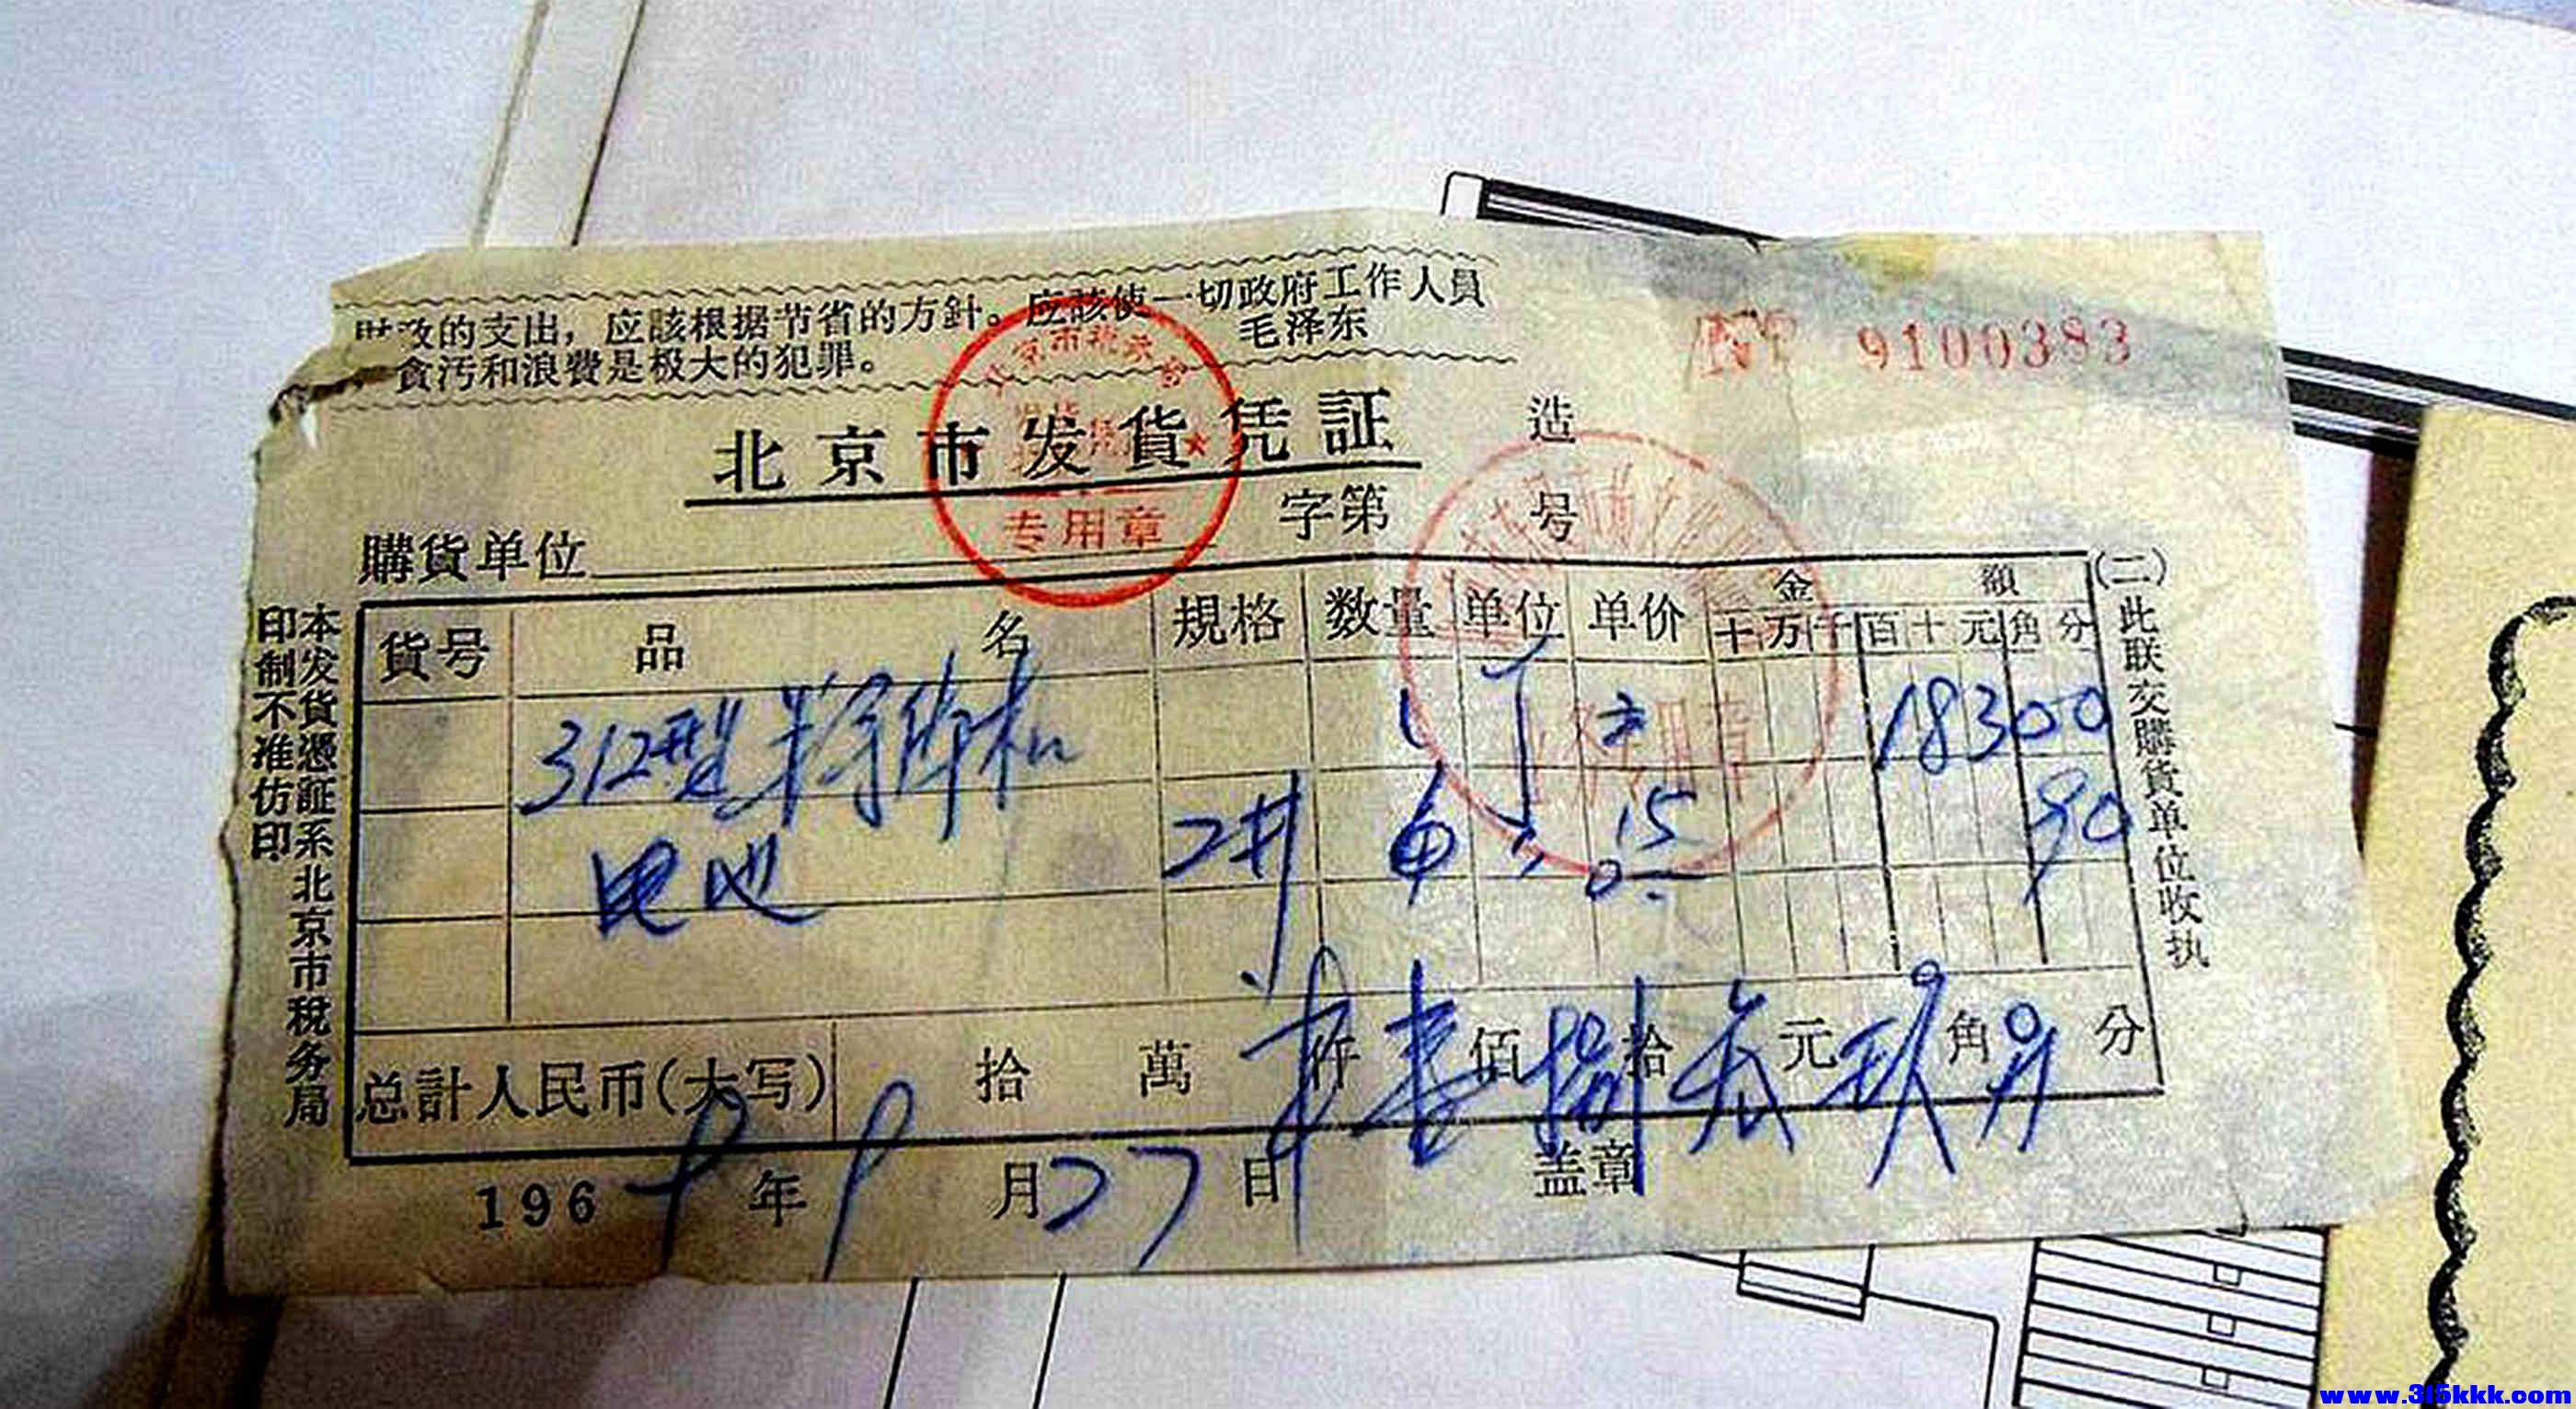 财政的支出，应該根据节省的方針。应該使一切政府工作人員
貪污和浪費是极大的犯罪。 毛泽东
№ 9100383
北京市发貨凭証
造
字第 号
专用章
購貨单位
貨号 品名 規格 数量 单位 单价 金額
十万千百十元角分
312型 18300
电池 2# 6 15 90
总計人民币(大写) 拾 萬 仟 壹佰 捌拾 叁元 玖角 分
196 年9月27日 盖章
本发貨憑証系北京市税务局
印制不准仿印
(二)此联交購貨单位收执
www.315kkk.com